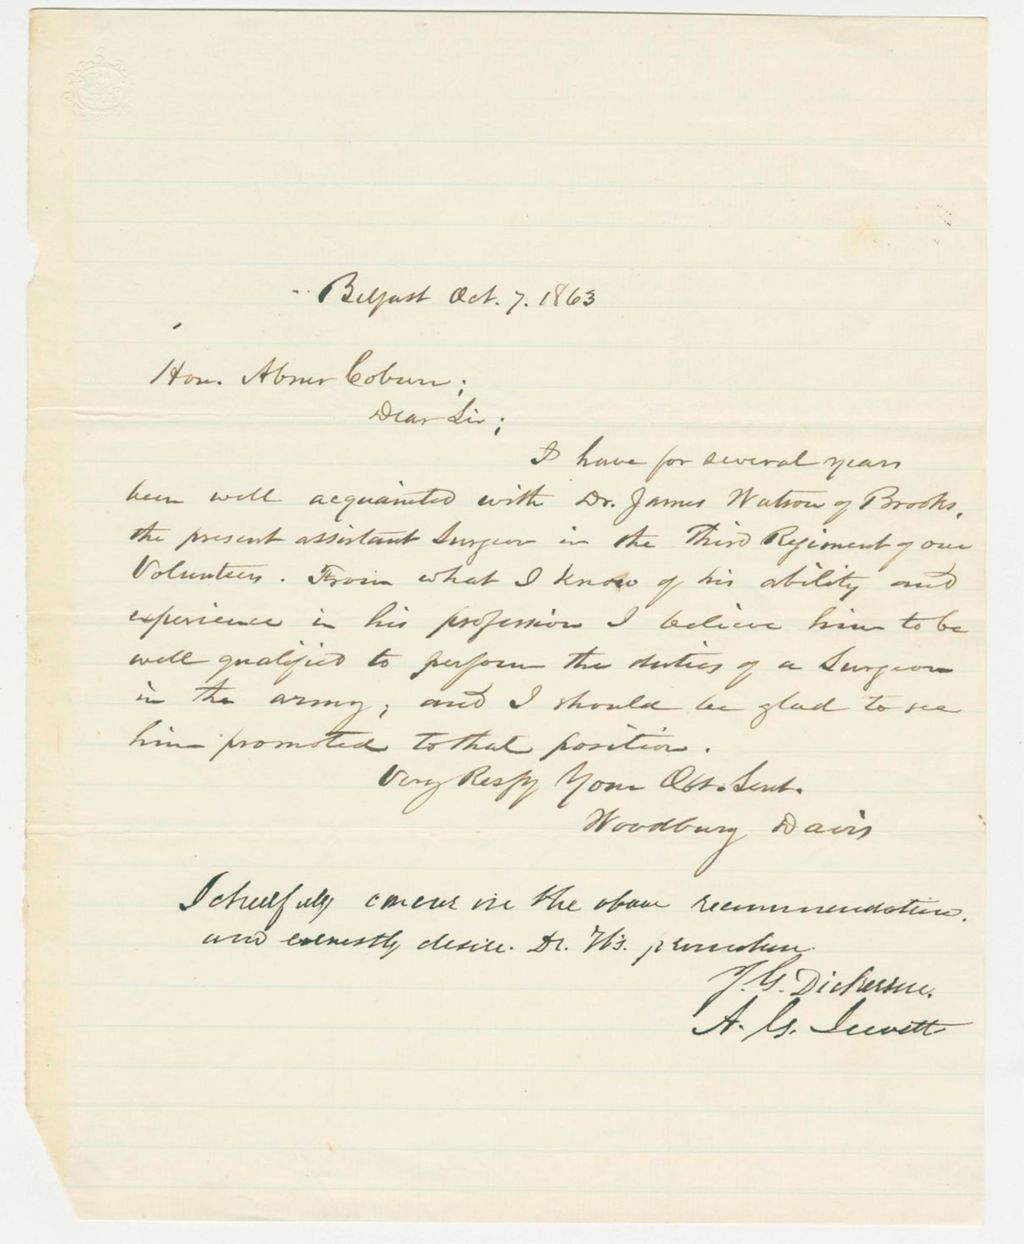 Belfast Oct. 7. 1863
Hon. Abner Coburn;
Dear Sir;
I have for several years
been well acquainted with Dr. James Watson of Brooks,
the present assistant Surgeon in the Third Regiment of our
Volunteers. From what I know of his ability and
experience in his profession I believe him to be
well qualified to perform the duties of a Surgeon
in the army; and I should be glad to see
him promoted to that position.
Very Respy Your Obt. Servt.
Woodbury Davis
I cheerfully concur in the above recommendation,
and earnestly desire Dr. W's. promotion.
J. G. Dickerson.
A. G. Jewett